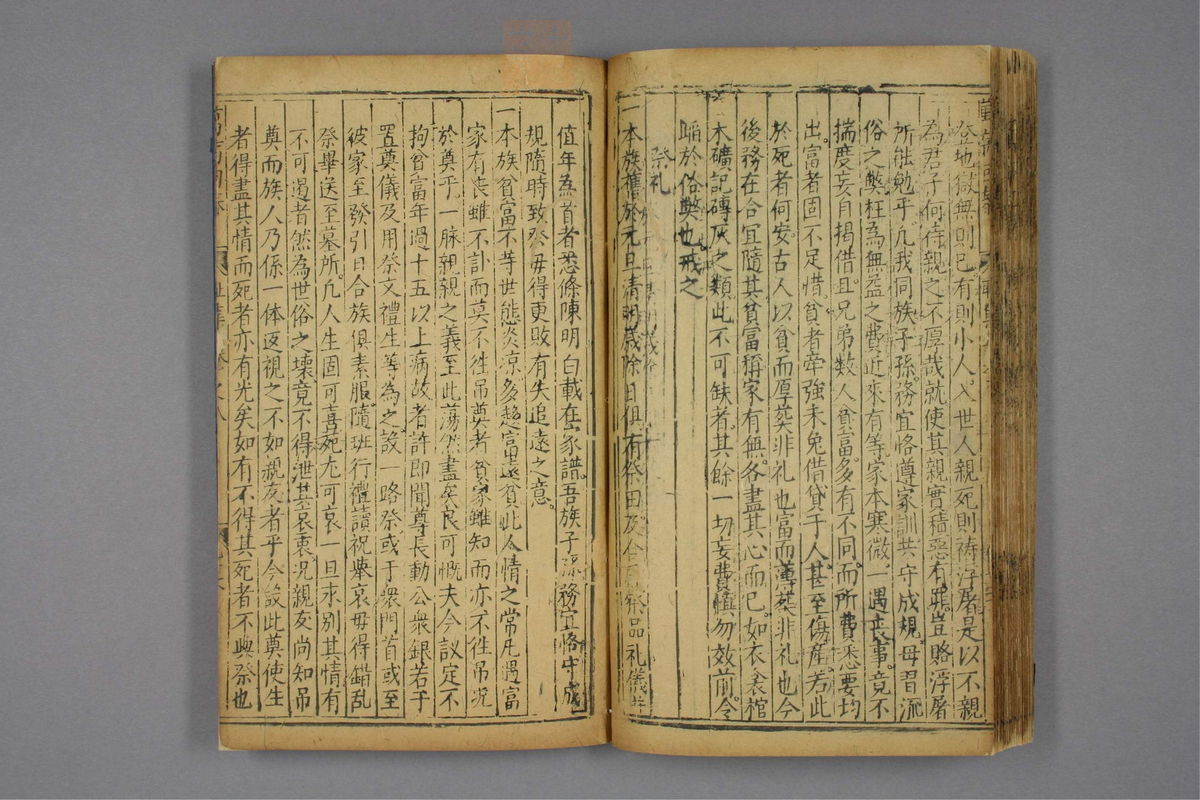 登地獄無則已有則小人入世人親死則禱浮屠是以不親
為君子何待親之不厚哉就使其親實積惡有罪豈賂浮屠
所能勉乎凡我同族子孫務宜恪遵家訓共守成規毋習流
俗之獘枉為無益之費近來有等家本寒微一遇丧事竟不
揣度妄自揭借且兄弟数人貧富多有不同而所費悉要均
出富者固不足惜貧者牽強未免借貸于人甚至傷産若此
於死者何安古人以貧而厚葬非礼也富而薄葬非礼也今
後務在合宜隨其貧富稱家有無各盡其心而已如衣衾棺
木礦記磚灰之類此不可缺者其餘一切妄費慎勿效前令
蹈於俗獘也戒之
祭礼
一本族舊於元旦清明歲除日俱有祭田及合祭品礼儀
值年為首者悉條陳明白載在家譜吾族子孫務宜恪守成
規隨時致祭毋得更改有失追遠之意
一本族貧富不等世態炎凉多趋富遠貧此人情之常凡遇富
家有丧雖不訃而莫不徃吊奠者貧家雖知而亦不徃吊况
於奠乎一脉親親之義至此蕩然盡矣良可慨夫今議定不
拘貧富年過十五以上病故者許即聞尊長動公衆銀若干
置奠儀及用祭文禮生等為之設一路祭或于衆門首或至
彼家至發引日合族俱素服隨班行禮讀祝舉哀毋得錯乱
祭畢送至墓所凡人生固可喜死尢可哀一旦永别其情有
不可遏者然為世俗之壞竟不得泄其哀衷况親友尚知吊
奠而族人乃係一体返視之不如親友者乎今設此奠使生
者得盡其情而死者亦有光矣如有不得其死者不與祭也